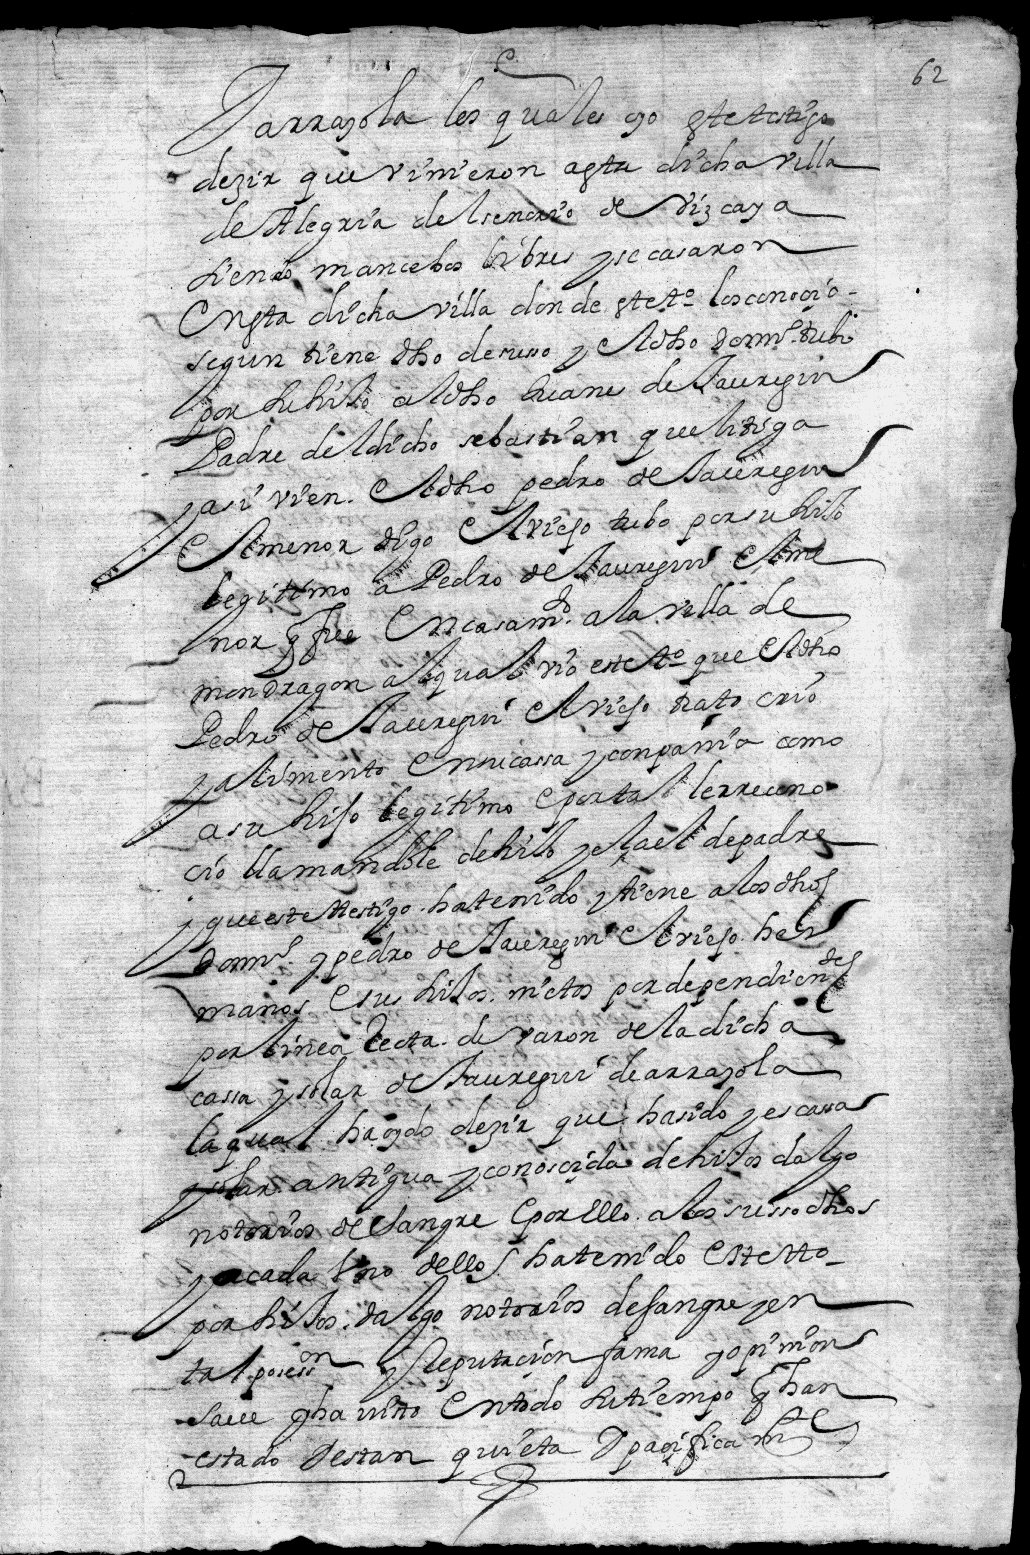 62
Jarrayola los quales oyo este testigo
dezir que vinieron a esta dicha villa
de Alegria del senorio de Vizcaya
siendo mancebos libres y se casaron
En esta dicha villa donde este to los conoçio
segun tiene dho de suso y el dho domi.º tubo
por su hijo al dho Juanes de Jauregui
Padre del dicho sebastian que litiga
y asi vien. El dho pedro de Jauregui
El menor digo El viejo tubo por su hijo
legitimo a Pedro de Jauregui El me
nor q fue En casam.º a la villa de
mondragon al qual vio este to que El dho
Pedro de Jauregui El viejo trato crio
y alimento En su cassa y conpania como
a su hijo legitimo E por tal le rrecono
cio llamandole de hijo y el a el de padre
y que este testigo ha tenido y tiene a los dhos
domi.º y pedro de Jauregui El viejo her
manos E sus hijos nietos por dependientes
por linea Recta de varon de la dicha
cassa y solar de Jauregui de arrayola
la qual ha oydo dezir que ha sido y es cassa
y solar antigua y conoscida de hijos dalgo
notorios de sangre E por Ello a los susso dhos
y a cada Uno dellos ha tenido Este tto
por hijos dalgo notorios de sangre y en
tal posession y Reputacion fama y opinion
save q ha visto En todo su tiempo q han
estado Y estan quieta Y paçificamte